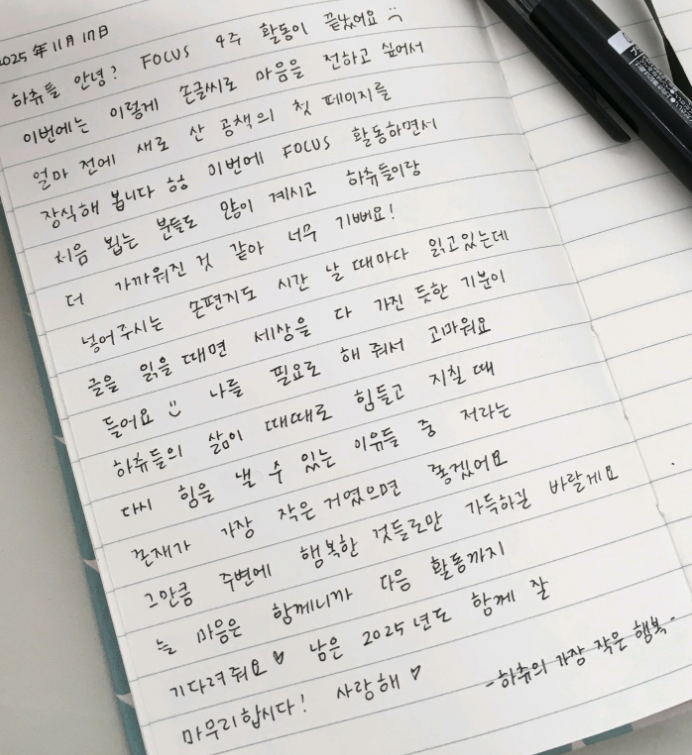 2025年 11月 17日
하츄들 안녕? FOCUS 4주 활동이 끝났어요 :(
이번에는 이렇게 손글씨로 마음을 전하고 싶어서
얼마 전에 새로 산 공책의 첫 페이지를
장식해 봅니다 ㅎㅎ 이번에 FOCUS 활동하면서
처음 뵙는 분들도 많이 계시고 하츄들이랑
더 가까워진 것 같아 너무 기뻐요!
넣어주시는 손편지도 시간 날 때마다 읽고있는데
글을 읽을 때면 세상을 다 가진 듯한 기분이
들어요 :) 나를 필요로 해 줘서 고마워요
하츄들의 삶이 때때로 힘들고 지칠 때
다시 힘을 낼 수 있는 이유들 중 저라는
존재가 가장 작은 거였으면 좋겠어요
그만큼 주변에 행복한 것들로만 가득하길 바랄게요
늘 마음은 함께니까 다음 활동까지
기다려줘요♥ 남은 2025년도 함께 잘
마무리합시다! 사랑해♡
-하츄의 가장 작은 행복-